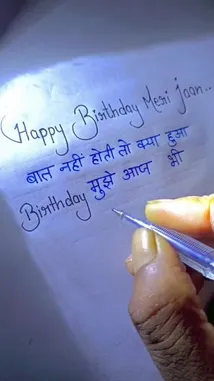 Happy Birthday Meri Jaan...
बात नहीं होती तो क्या हुआ
Birthday मुझे आज भी